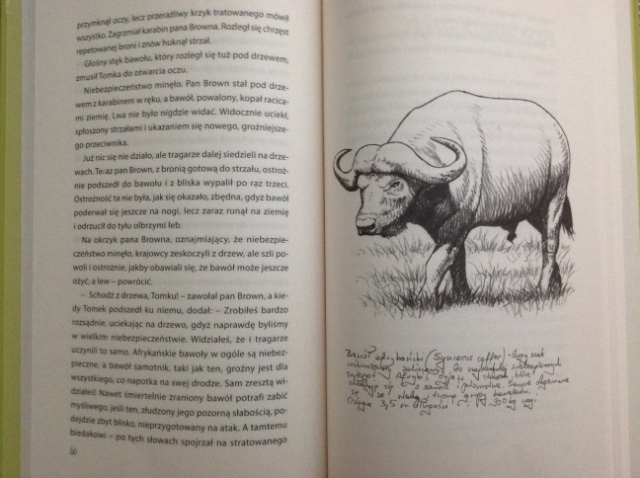 przymknął oczy, lecz przeraźliwy krzyk tratowanego mówił
wszystko. Zagrzmiał karabin pana Browna. Rozległ się chrzęst
repetowanej broni i znów huknął strzał.
Głośny stęk bawołu, który rozległ się tuż pod drzewem,
zmusił Tomka do otwarcia oczu.
Niebezpieczeństwo minęło. Pan Brown stał pod drze-
wem z karabinem w ręku, a bawół, powalony, kopał racica-
mi ziemię. Lwa nie było nigdzie widać. Widocznie uciekł,
spłoszony strzałami i ukazaniem się nowego, groźniejsze-
go przeciwnika.
Już nic się nie działo, ale tragarze dalej siedzieli na drze-
wach. Teraz pan Brown, z bronią gotową do strzału, ostroż-
nie podszedł do bawołu i z bliska wypalił po raz trzeci.
Ostrożność ta nie była, jak się okazało, zbędna, gdyż bawół
poderwał się jeszcze na nogi, lecz zaraz runął na ziemię
i odrzucił do tyłu olbrzymi łeb.
Na okrzyk pana Browna, oznajmiający, że niebezpie-
czeństwo minęło, krajowcy zeskoczyli z drzew, ale szli po-
woli i ostrożnie, jakby obawiali się, że bawół może jeszcze
ożyć, a lew – powrócić.
– Schodź z drzewa, Tomku! – zawołał pan Brown, a kie-
dy Tomek podszedł ku niemu, dodał: – Zrobiłeś bardzo
rozsądnie, uciekając na drzewo, gdyż naprawdę byliśmy
w wielkim niebezpieczeństwie. Widziałeś, że i tragarze
uczynili to samo. Afrykańskie bawoły w ogóle są niebez-
pieczne, a bawół samotnik, taki jak ten, groźny jest dla
wszystkiego, co napotka na swej drodze. Sam zresztą wi-
działeś! Nawet śmiertelnie zraniony bawół potrafi zabić
myśliwego, jeśli ten, złudzony jego pozorną słabością, po-
dejdzie zbyt blisko, nieprzygotowany na atak. A tamtemu
biedakowi – po tych słowach spojrzał na stratowanego
60
Bawół afrykański (Syncerus caffer)
zaliczany do najbardziej niebezpiecznych
zwierząt Afryki.